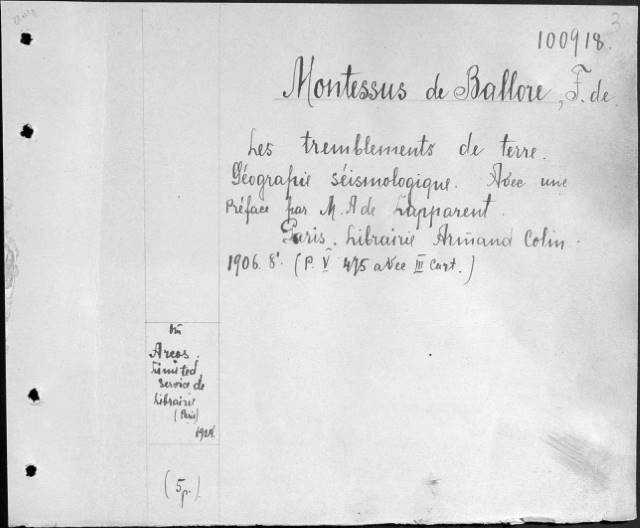 100918.
Montessus de Ballore, F. de
Les tremblements de terre.
Géografie séismologique. Avec une
Préface par M. A de Lapparent.
Paris. Librairie Armand Colin.
1906. 8°. (P. V 475 avec III Cart.)
Arcos.
Limited
Service de
Librairie
(Paris)
(5 p.)